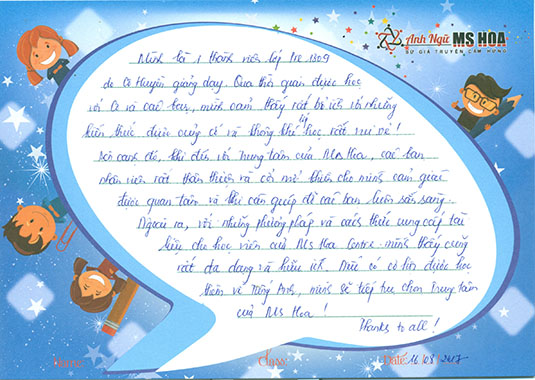 Anh Ngữ MS HOA
SỨ GIẢ TRUYỀN CẢM HỨNG
Mình là 1 thành viên lớp Pre 1309
do Cô Huyền giảng dạy. Qua thời gian được học
với Cô và các bạn, mình cảm thấy rất bổ ích với những
kiến thức được củng cố và không khí lớp học rất vui vẻ!
Bên cạnh đó, khi đến với Trung tâm của Ms Hoa, các bạn
nhân viên rất thân thiện và cởi mở khiến cho mình cảm giác
được quan tâm và khi cần giúp đỡ các bạn luôn sẵn sàng.
Ngoài ra, với những phương pháp và cách thức cung cấp tài
liệu cho học viên của Ms Hoa Centre mình thấy cũng
rất đa dạng và hữu ích. Nếu có cơ hội được học
thêm về Tiếng Anh, mình sẽ tiếp tục chọn Trung tâm
của Ms Hoa!
Thanks to all!
Name: Class: Date: 16/08/2017